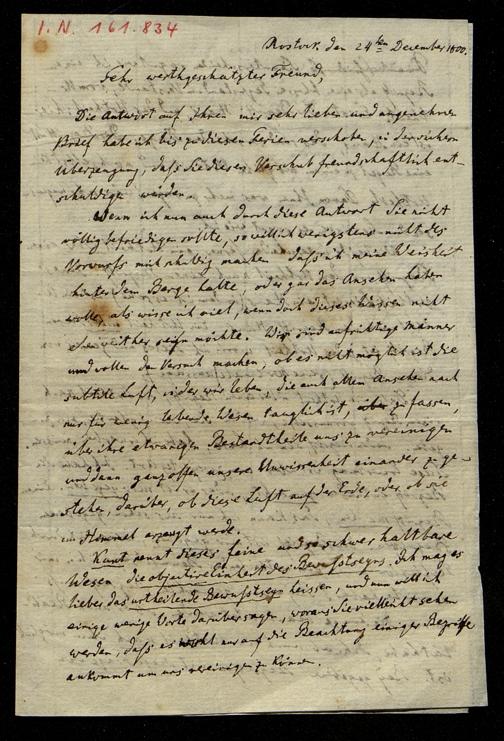 I. N. 161.834
Rostock den 24ten December 1800.
Sehr werthgeschätzter Freund,
Die Antwort auf Ihnen mir sehr lieben und angenehmen
Brief habe ich bis zu diesen Ferien verschoben, in der sichern
Überzeugung, daß Sie diesen Verschub freundschaftlich ent-
schuldigen würden.
Wenn ich nun auch durch diese Antwort Sie nicht
völlig befriedigen sollte, so will ich wenigstens nicht des
Vorwurfs mich schuldig machen daß ich meine Weisheit
hinter dem Berge halte, oder gar das Ansehen haben
wolle, als wisse ich viel, wenn doch dieses Wissen nicht
eben weit her seyn möchte. Wir sind aufrichtige Männer
und wollen den Versuch machen, ob es nicht möglich ist die
subtile Luft, in der wir leben, die auch allem Ansehen nach
nur für wenig lebende Wesen tauglich ist, zu fassen,
über ihre etwanigen Bestandtheile uns zu vereinigen
und dann ganz offen unsere Unwissenheit einander zu ge-
stehen, darüber, ob diese Luft auf der Erde, oder ob sie
im Himmel erzeugt werde.
Kant nennt dieses feine und so schwer haltbare
Wesen die objective Einheit des Bewußtseyns. Ich mag es
lieber das urtheilende Bewußtseyn heissen, und nun will ich
einige wenige Worte darüber sagen, woraus Sie vielleicht sehen
werden, daß es wohl nur auf die Beachtung einiger Begriffe
ankommt um uns vereinigen zu können.